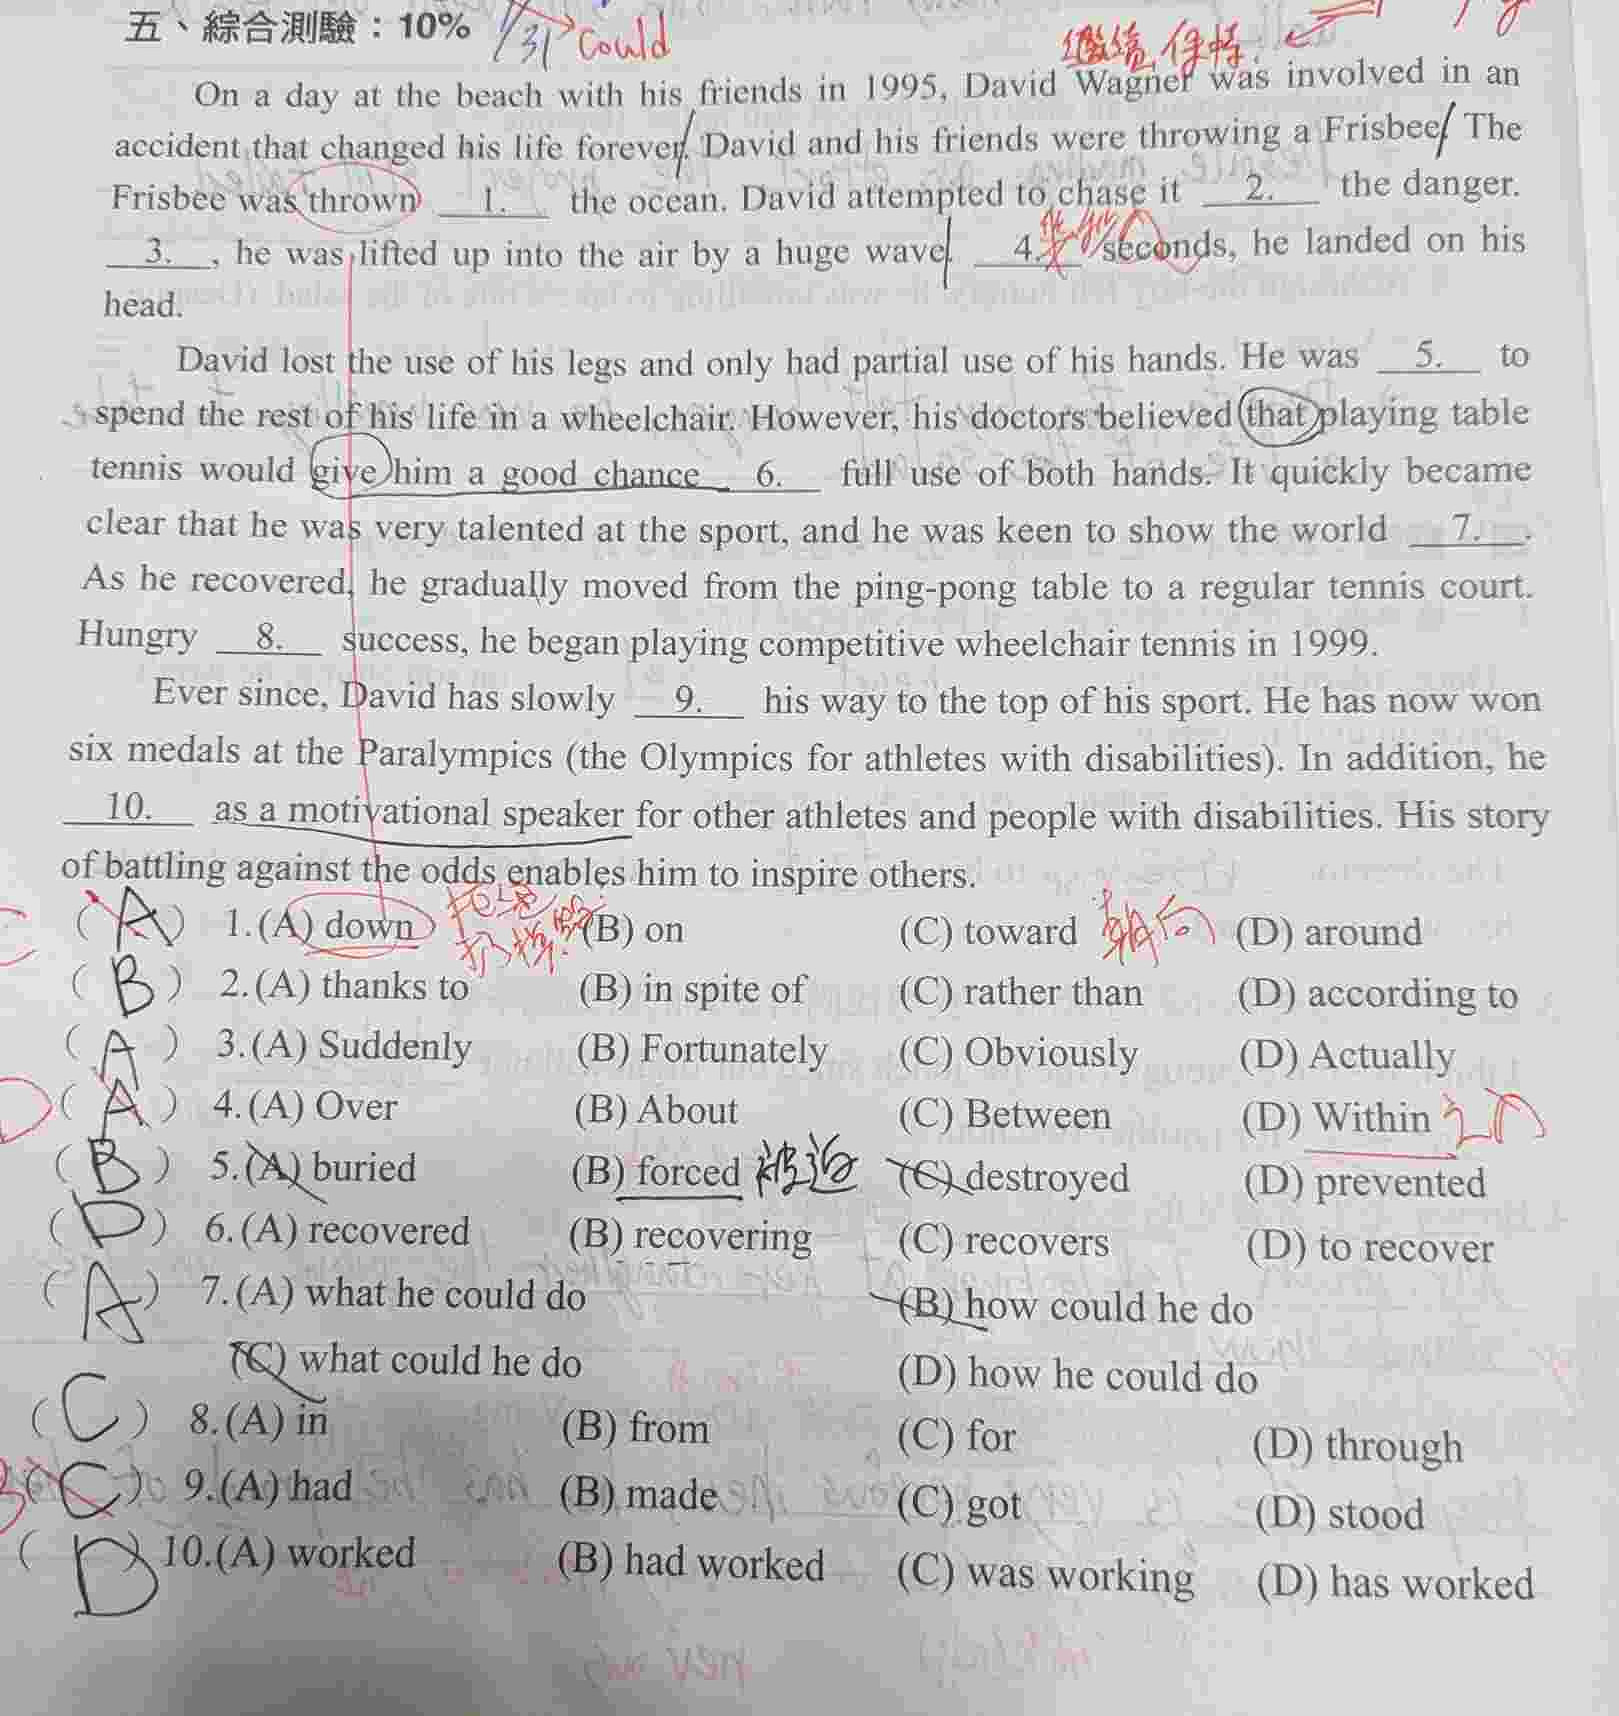 五、綜合測驗：10%
引 could
繼續 保持
On a day at the beach with his friends in 1995, David Wagner was involved in an
accident that changed his life forever. David and his friends were throwing a Frisbee. The
Frisbee was thrown 1. the ocean. David attempted to chase it 2. the danger.
3. , he was lifted up into the air by a huge wave. 4. seconds, he landed on his
head.
David lost the use of his legs and only had partial use of his hands. He was 5. to
spend the rest of his life in a wheelchair. However, his doctors believed that playing table
tennis would give him a good chance 6. full use of both hands. It quickly became
clear that he was very talented at the sport, and he was keen to show the world 7. .
As he recovered, he gradually moved from the ping-pong table to a regular tennis court.
Hungry 8. success, he began playing competitive wheelchair tennis in 1999.
Ever since, David has slowly 9. his way to the top of his sport. He has now won
six medals at the Paralympics (the Olympics for athletes with disabilities). In addition, he
10. as a motivational speaker for other athletes and people with disabilities. His story
of battling against the odds enables him to inspire others.
C ( A ) 1.(A) down (B) on (C) toward 朝向 (D) around
( B ) 2.(A) thanks to (B) in spite of (C) rather than (D) according to
( A ) 3.(A) Suddenly (B) Fortunately (C) Obviously (D) Actually
D ( A ) 4.(A) Over (B) About (C) Between (D) Within 之內
( B ) 5.(A) buried (B) forced 被迫 (C) destroyed (D) prevented
( D ) 6.(A) recovered (B) recovering (C) recovers (D) to recover
( A ) 7.(A) what he could do (B) how could he do
(C) what could he do (D) how he could do
( C ) 8.(A) in (B) from (C) for (D) through
B ( C ) 9.(A) had (B) made (C) got (D) stood
( D ) 10.(A) worked (B) had worked (C) was working (D) has worked